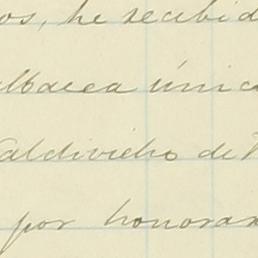 os, he recibid
albacea única
Valdivieho de
por honorar